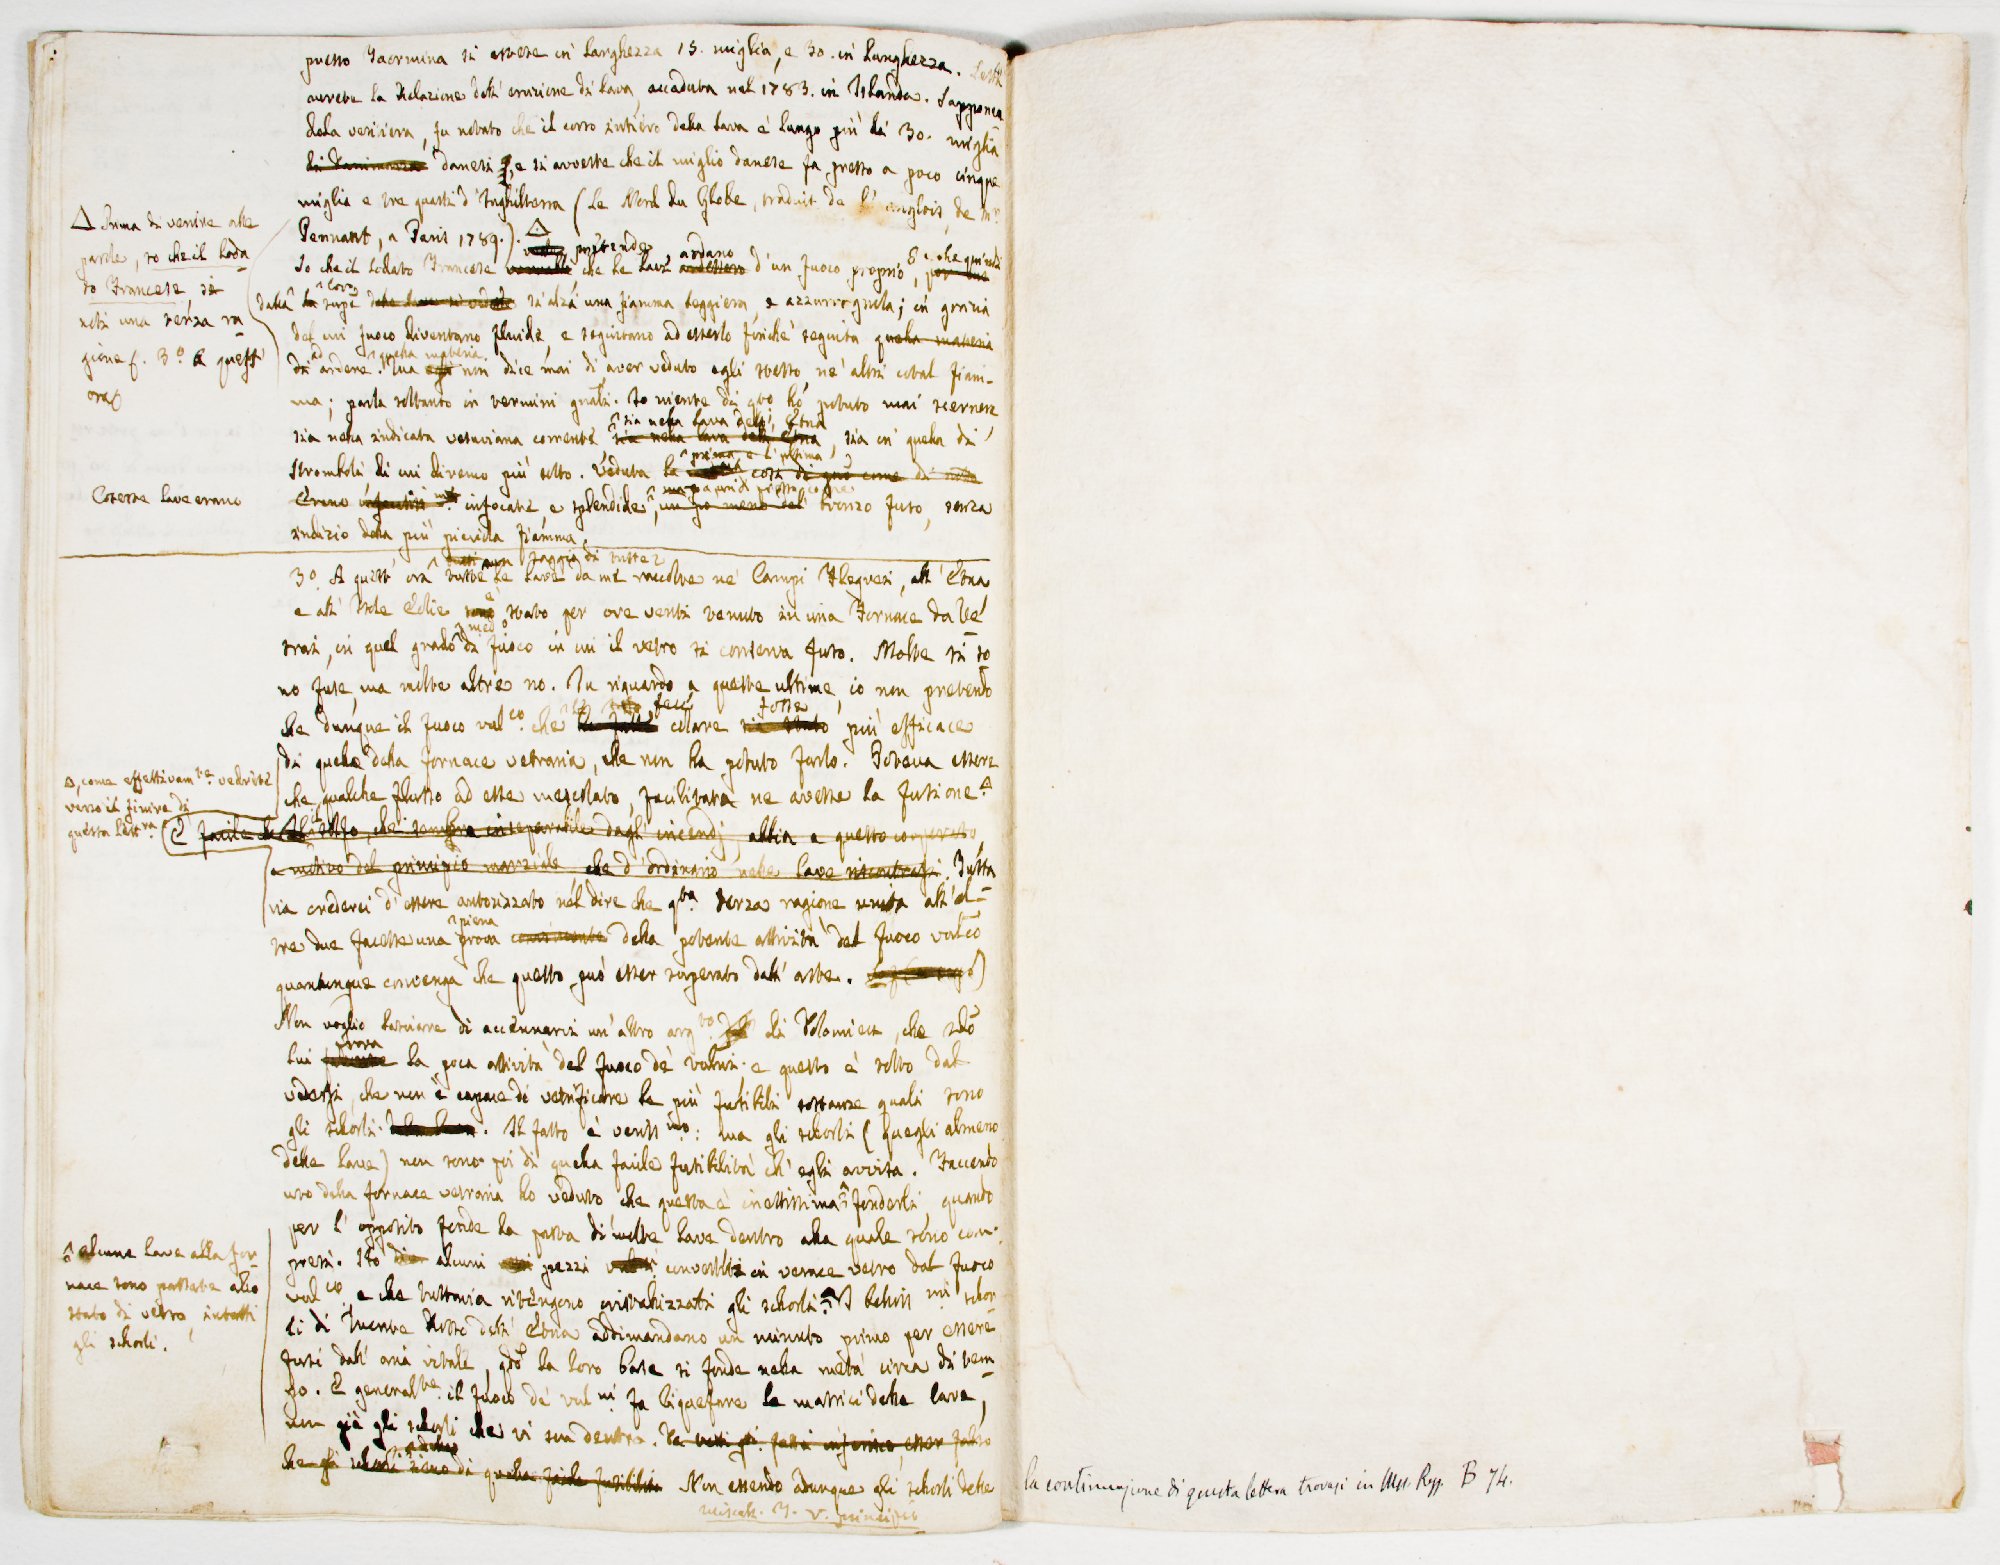 presso Taormina si estese in larghezza 15. miglia, e 30. in lunghezza.
avrete la Relazione dell' eruzione di lava accaduta nel 1783. in Islanda. Sapponen
dola veritiera, fu notato che il corso intiero della lava è lungo più di 30. miglia
danesi, e si avverte che il miglio danese fa presso a poco cinque
miglia e tre quarti d'Inghilterra (Le Nord du Globe, traduit de l'anglois, de Mr.
Pennant, a Paris 1789.). Δ
Δ Prima di venire alle
parole, so che il loda
to Francese, si
noti una terza ra
gione f. 3.° A quest'
ora
So che il lodato Francese pretende che le lave ardano d'un fuoco proprio, e che quindi
dalla loro si alza una fiamma leggiera, e azzurrognola; in grazia
del cui fuoco diventano fluide, e seguitano ad esserlo finchè seguita quella materia
ad ardere. Ma non dice mai di aver veduto egli stesso nè altri cotal fiam-
ma; parla soltanto in termini gnali. Io niente di qto ho potuto mai scernere
sia nella indicata vesuviana corrente sia nella lava dell' Etna, sia in quella di
Stromboli, di cui diremo più sotto. Veduta la prima, e l'ultima
Coteste lave erano
infocate, e splendide, bronzo fuso, senza
indizio della più picciola fiamma.
3.° A quest' ora saggio di tutte le lave da me raccolte ne' Campi Flegrei, all' Etna
e all' Isole Eolie è stato per ore venti tenuto in una Fornace da Ve
trai, in quel grado di fuoco in cui il vetro si conserva fuso. Molte si so
no fuse, ma molte altre no. In riguardo a queste ultime, io non pretendo
che dunque il fuoco valco. che le fece colare fosse più efficace
di quello della fornace vetraria, che non ha potuto farlo. Poteva essere
che qualche flusso ad esse mescolato, facilitata ne avesse la fusione. Δ
Δ, come effettivamte. vedrete
verso il finire di
questa lettra.
È facile che il zolfo, che sembra inseparabile dagl' incendj, abbia a questo cooperato,
a motivo del principio marziale che d'ordinario nelle lave riscontrasi. Tutta
via crederei d'essere autorizzato nel dire che qta. terza ragione unita all' al-
tre due facesse una piena prova della potente attività del fuoco valco
quantunque convenga che questo può esser superato dall' arte.
Non voglio lasciare di accennarvi un' altro argto. di Dolomieu, che sdo
lui prova la poca attività del fuoco de' vulcani. e questo è tolto dal
vedersi, che non è capace di vetrificare le più fusibili sostanze quali sono
gli schorli. Il fatto è veriss mo: ma gli schorli (quegli almeno
delle lave) non sono poi di quella facile fusibilità ch' egli avvisa. Facendo
uso della fornace vetraria ho veduto che questa è inettissima a fonderli, quando
per l' opposito fonde la pasta di molte lave dentro alla quale sono com-
presi. Ho alcuni pezzi convertiti in verace vetro dal fuoco
valco. e che tuttavia ritengono cristallizzati gli schorli. I belliss mi schor
alcune lave alla for
nace sono passate allo
stato di vetro, intatti
gli schorli.
li di Monte Rosso dell' Etna addimandano un minuto primo per essere
fusi dall' aria vitale, qdo la loro base si fonde nella metà circa di tem
po. E generalte. il fuoco de' val ni fa liquefare le matrici delle lave,
non già gli schorli che vi son dentro. Da essere falso
che gli schorli sieno di quella facile fusibilità. Non essendo adunque gli schorli delle
la continuazione di questa lettera trovasi in Mss. Regg. B 74.